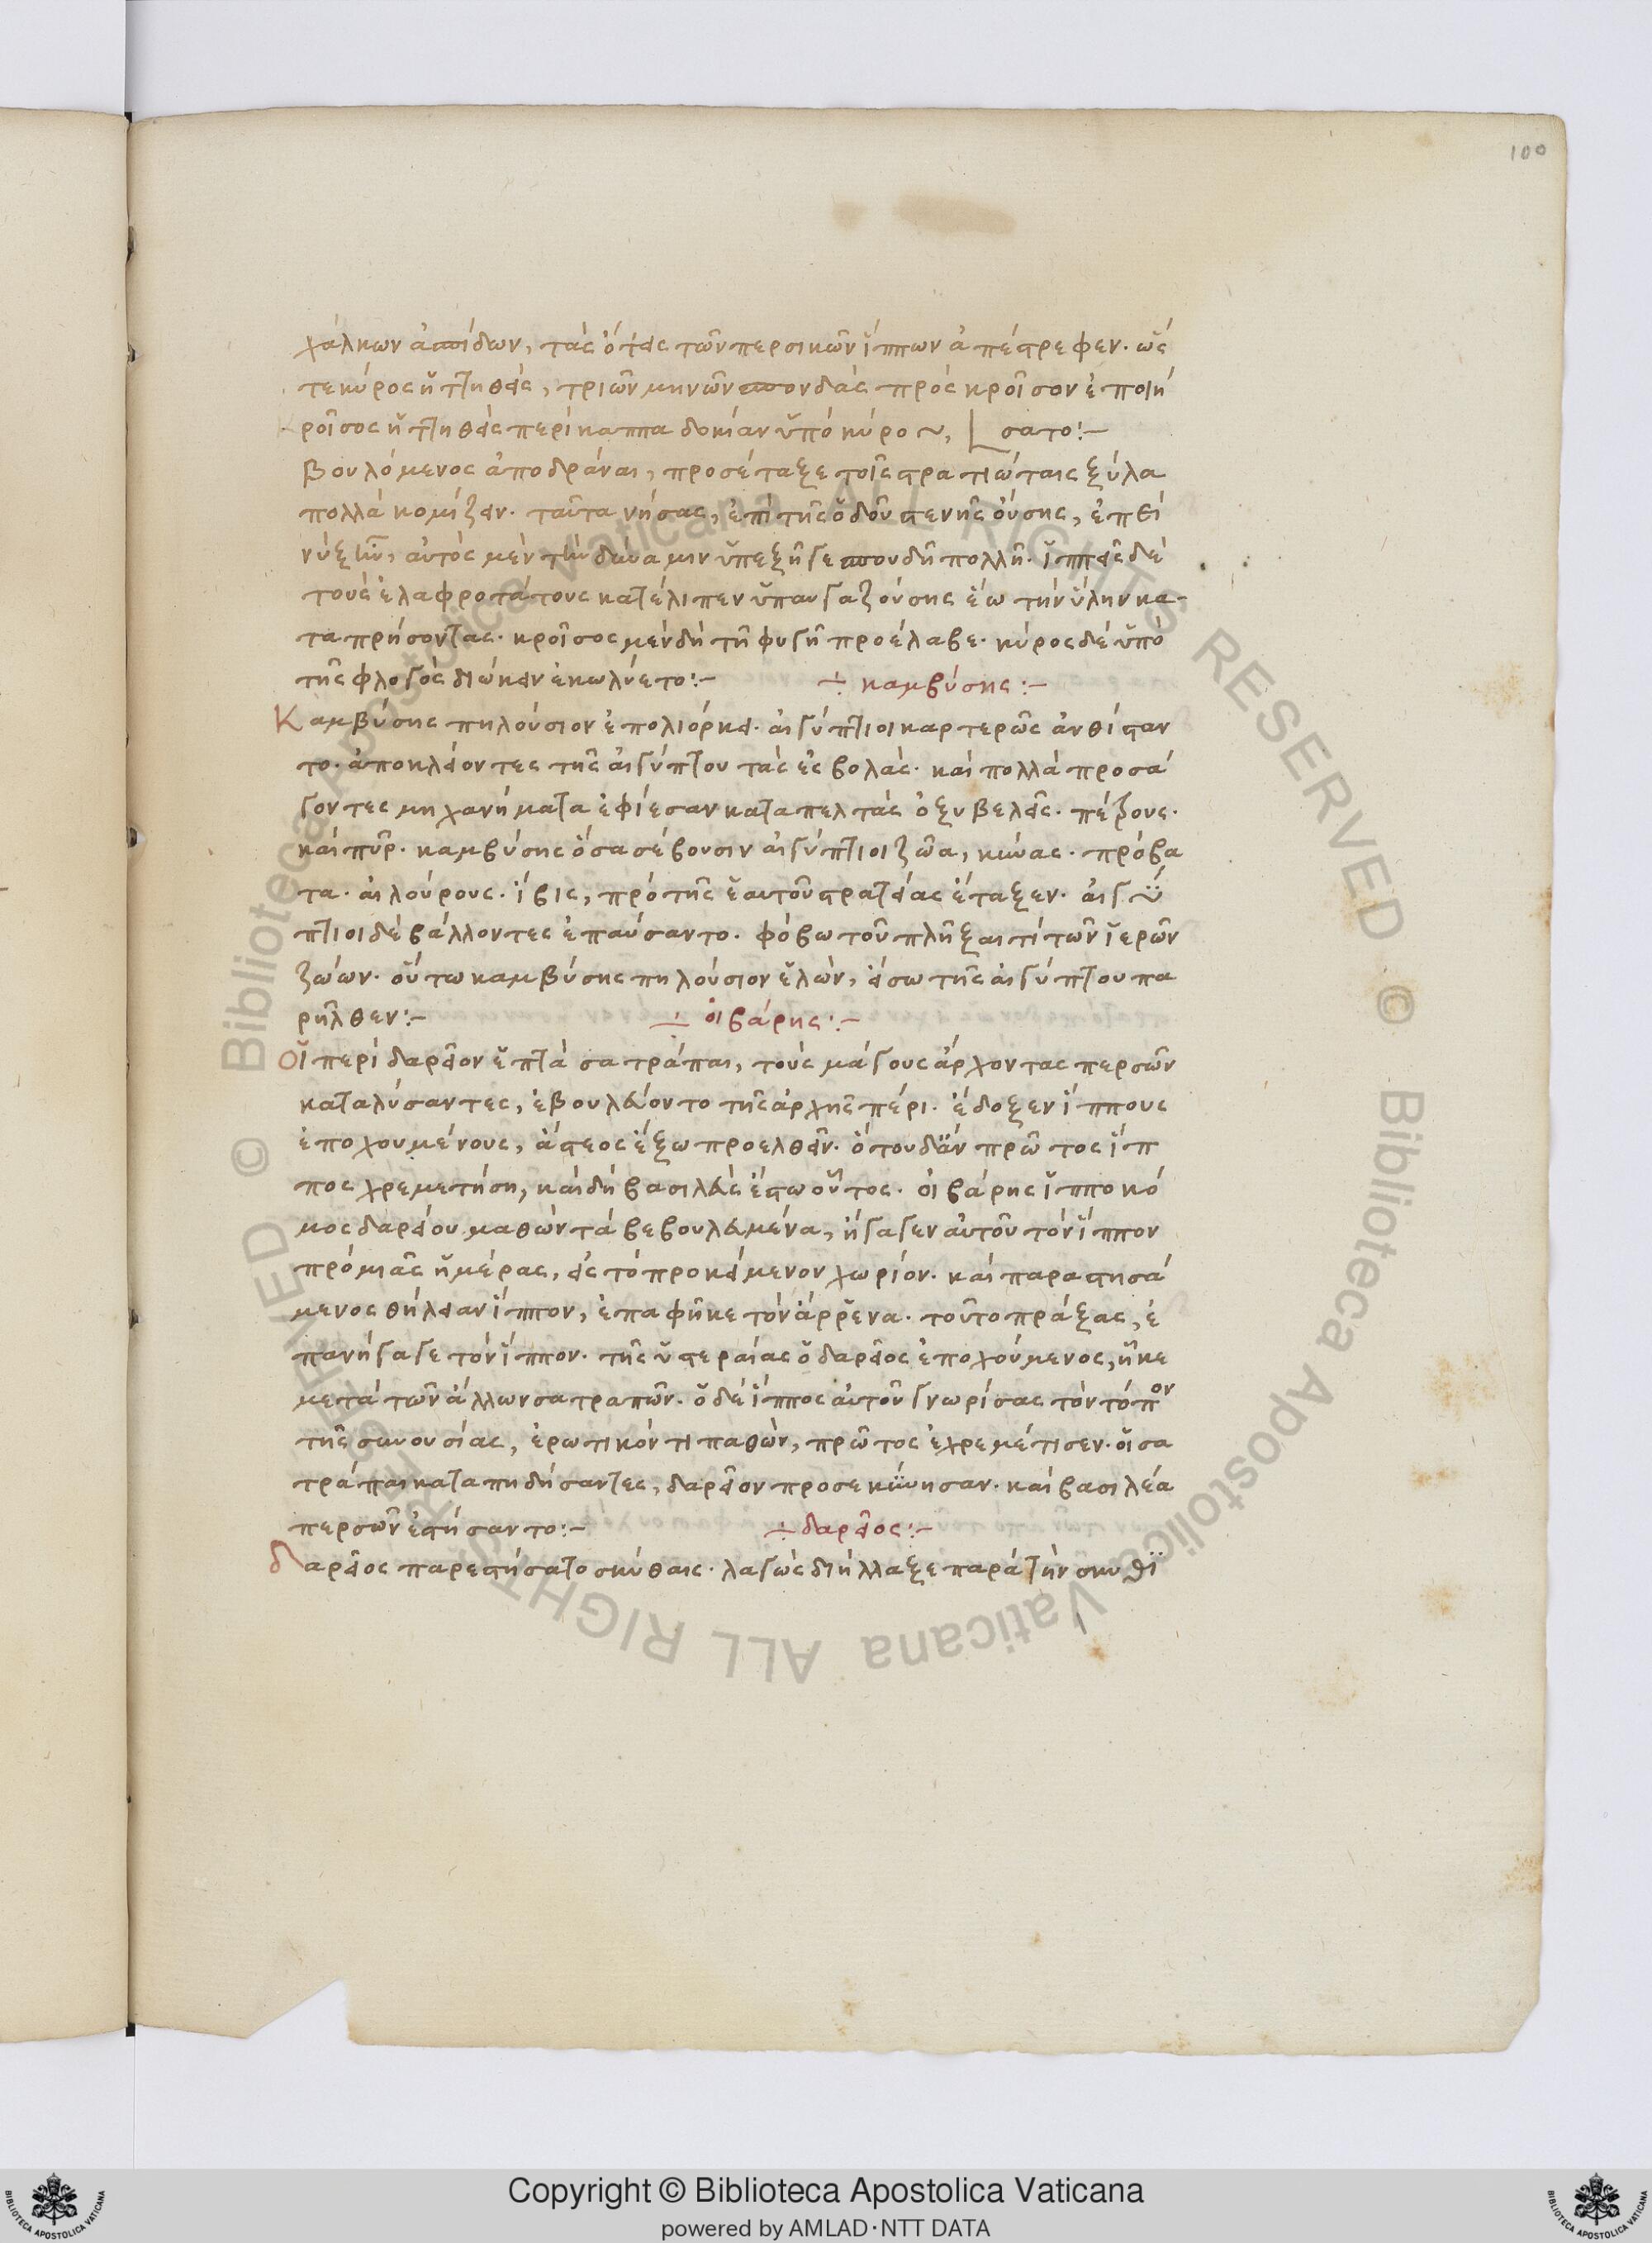 100
χάλκων ἀσπίδων, τὰς ὄψεις τῶν περσικῶν ἵππων ἀπέστρεφεν. ὥς
τε κύρος ἡττηθεὶς, τριῶν μηνῶν σπονδὰς πρὸς κροῖσον ἐποιή
ροῖσος ἡττηθεὶς περὶ καππαδοκίαν ὑπὸ κύρου, σατο:-
βουλόμενος ἀποδράναι, προσέταξε τοῖς στρατιώταις ξύλα
πολλὰ κομίζειν. ταῦτα νήσας, ἐπὶ τῆς ὁδοῦ στενῆς οὔσης, ἐπεὶ
νὺξ ἦν, αὐτὸς μὲν τὴν δύναμιν ὑπεξῆγε σπουδῆ πολλῆ. ἱππεῖς δὲ
τοὺς ἐλαφροτάτους κατέλιπεν ὑπαυγαζούσης ἕω τὴν ὕλην κα-
ταπρήσοντας. κροῖσος μὲν δὴ τῆ φυγῆ προέλαβε. κύρος δὲ ὑπὸ
τῆς φλογὸς διώκειν ἐκωλύετο:-
÷ καμβύσης:-
Καμβύσης πηλούσιον ἐπολιόρκει. αἰγύπτιοι καρτερῶς ἀνθίσταν
το. ἀποκλείοντες τῆς αἰγύπτου τὰς ἐσβολάς. καὶ πολλὰ προσά
γοντες μηχανήματα ἐφίεσαν καταπελτὰς ὀξυβελεῖς. πέζους.
καὶ πῦρ. καμβύσης ὅσα σέβουσιν αἰγύπτιοι ζῶα, κύνας. πρόβα
τα. αἰλούρους. ἴβις, πρὸ τῆς ἑαυτοῦ στρατείας ἔταξεν. αἰγύ
πτιοι δὲ βάλλοντες ἐπαύσαντο. φόβω τοῦ πλῆξαι τί τῶν ἱερῶν
ζώων. οὕτω καμβύσης πηλούσιον ἑλὼν, εἴσω τῆς αἰγύπτου πα
ρῆλθεν:-
÷ οἰβάρης:-
Οἱ περὶ δαρεῖον ἑπτὰ σατράπαι, τοὺς μάγους ἄρχοντας περσῶν
καταλύσαντες, ἐβουλεύοντο τῆς ἀρχῆς πέρι. ἔδοξεν ἵππους
ἐποχουμένους, ἄστεος ἔξω προελθεῖν. ὅτου δἂν πρῶτος ἵπ
πος χρεμετήση, καὶ δὴ βασιλεὺς ἔστω οὗτος. οἰβάρης ἱπποκό
μος δαρείου μαθὼν τὰ βεβουλευμένα, ἤγαγεν αὐτοῦ τὸν ἵππον
πρὸ μιᾶς ἡμέρας, εἰς τὸ προκείμενον χωρίον. καὶ παραστησά
μενος θήλειαν ἵππον, ἐπαφῆκε τὸν ἄρρενα. τοῦτο πράξας, ἐ
πανήγαγε τὸν ἵππον. τῆς ὑστεραίας ὁ δαρεῖος ἐποχούμενος, ἧκε
μετὰ τῶν ἄλλων σατραπῶν. ὁ δὲ ἵππος αὐτοῦ γνωρίσας τὸν τόπον
τῆς συνουσίας, ἐρωτικόν τι παθὼν, πρῶτος ἐχρεμέτισεν. οἱ σα
τράπαι καταπηδήσαντες, δαρεῖον προσεκύνησαν. καὶ βασιλέα
περσῶν ἐστήσαντο:-
÷ δαρεῖος:-
δαρεῖος παρεστήσατο σκύθαις. λαγὼς διήλλαξε παρὰ τὴν σκυθϊ
Copyright © Biblioteca Apostolica Vaticana
powered by AMLAD·NTT DATA